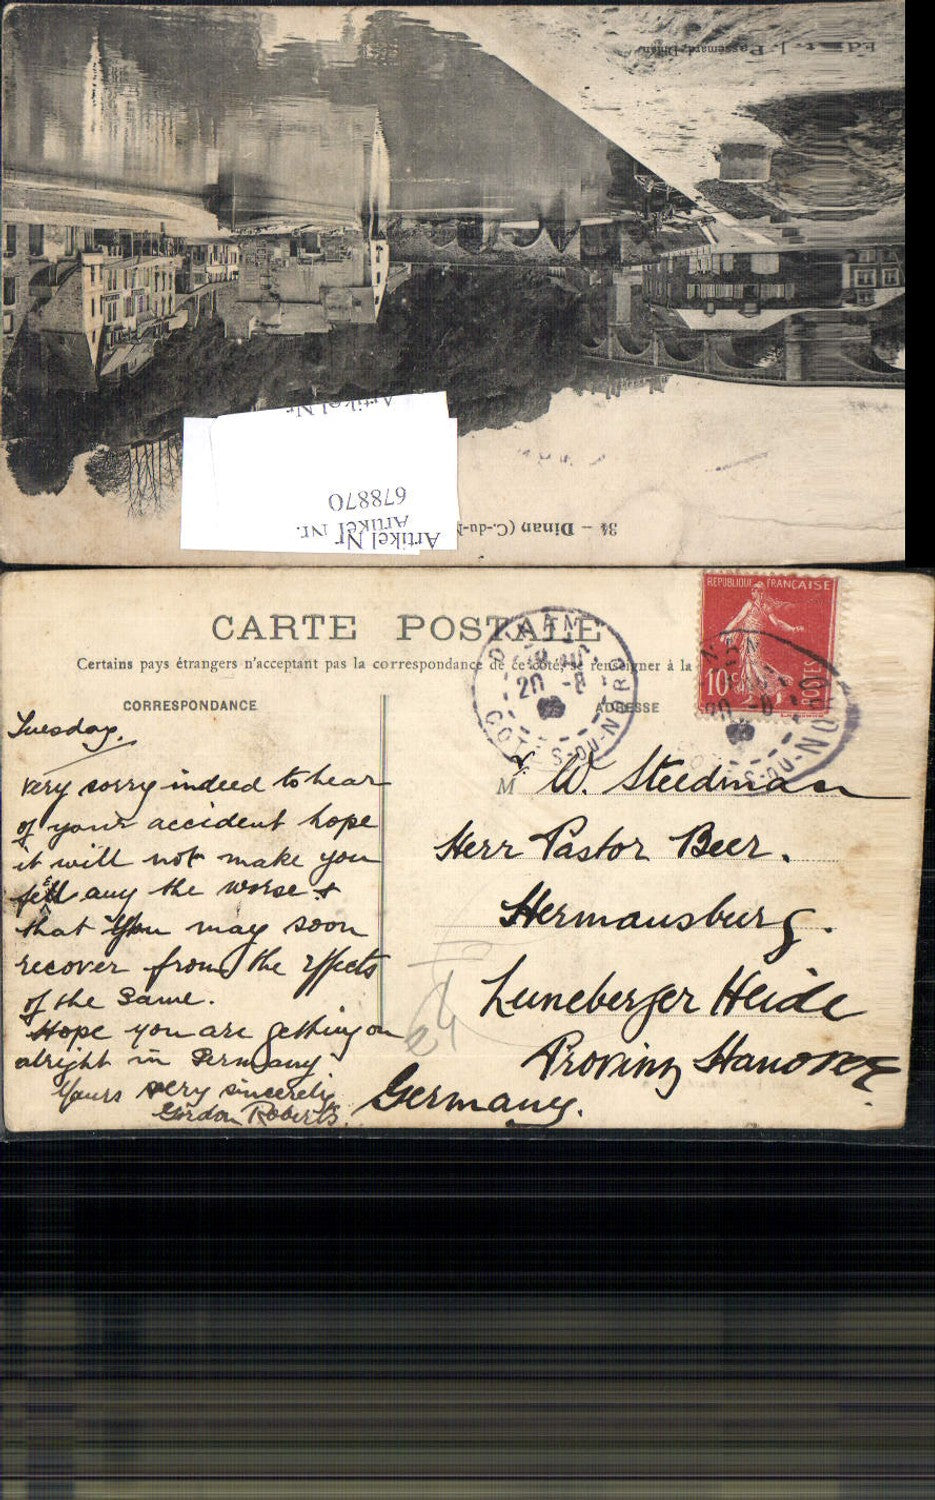 Edit. J. Passemard, Dinan
Artikel Nr
678870
Artikel Nr.
Artikel Nr
34 – Dinan (C.-du-N
CARTE POSTALE
Certains pays étrangers n'acceptant pas la correspondance de ce côté, se renseigner à la
REPUBLIQUE FRANÇAISE
10
POSTES
DINAN
20 -8
COTES-DU-NORD
CORRESPONDANCE
ADRESSE
Tuesday.
very sorry indeed to hear
of your accident hope
it will not make you
fell any the worse &
that you may soon
recover from the effects
of the same.
Hope you are getting on
alright in Germany
Yours very sincerely
Gordon Roberts.
Mr W. Steedman
Herr Pastor Beer.
Hermansburg.
Luneberger Heide
Provinz Hanover
Germany.